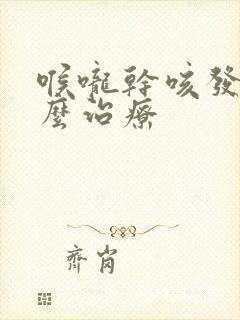 喉嚨幹咳發
麼治療
齊肖